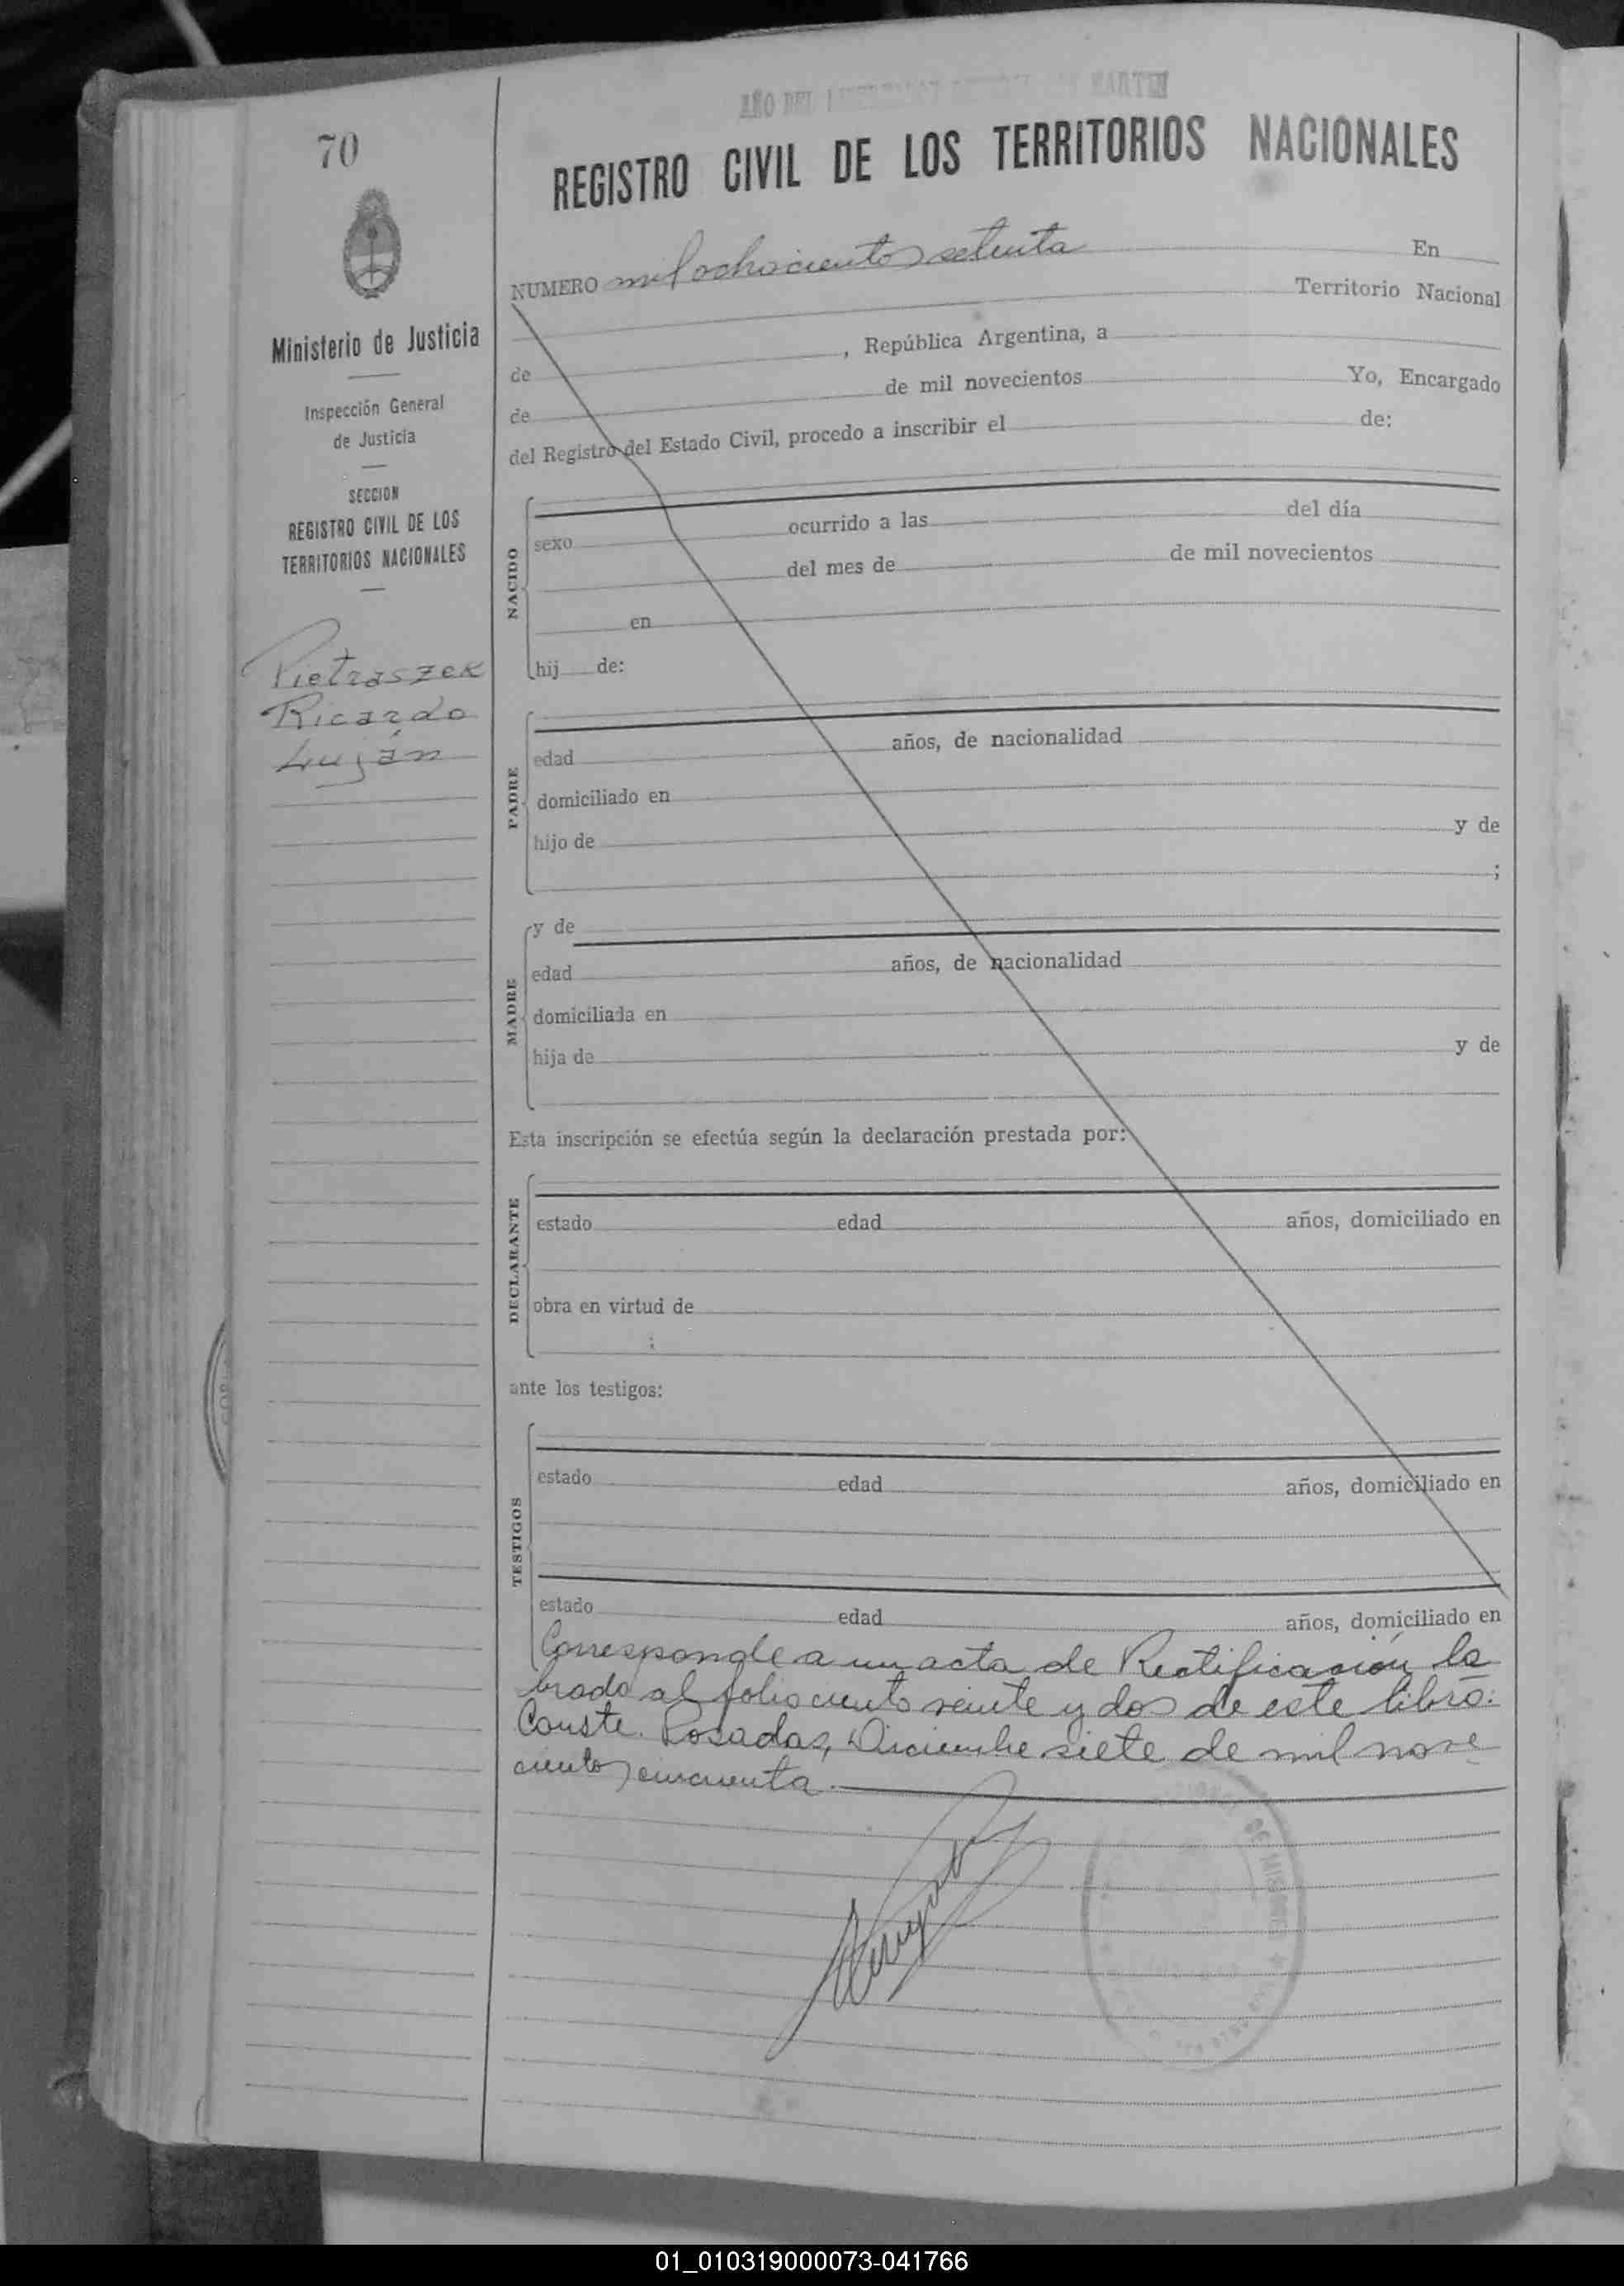 AÑO DEL LIBERTADOR GENERAL SAN MARTIN
70
REGISTRO CIVIL DE LOS TERRITORIOS NACIONALES
NUMERO mil ochocientos setenta En
Territorio Nacional
de , República Argentina, a
de de mil novecientos Yo, Encargado
del Registro del Estado Civil, procedo a inscribir el de:
Ministerio de Justicia
Inspección General
de Justicia
SECCION
REGISTRO CIVIL DE LOS
TERRITORIOS NACIONALES
Pietraszek
Ricardo
Luján
NACIDO
sexo ocurrido a las del día
del mes de de mil novecientos
en
hij de:
PADRE
edad años, de nacionalidad
domiciliado en
hijo de y de
;
MADRE
y de
edad años, de nacionalidad
domiciliada en
hija de y de
Esta inscripción se efectúa según la declaración prestada por:
DECLARANTE
estado edad años, domiciliado en
obra en virtud de
;
ante los testigos:
TESTIGOS
estado edad años, domiciliado en
estado edad años, domiciliado en
Corresponde a un acta de Rectificación la
brada al folio ciento veinte y dos de este libro:
Conste. Posadas, Diciembre siete de mil nove
cientos cincuenta.
DE MISIONES
01_010319000073-041766